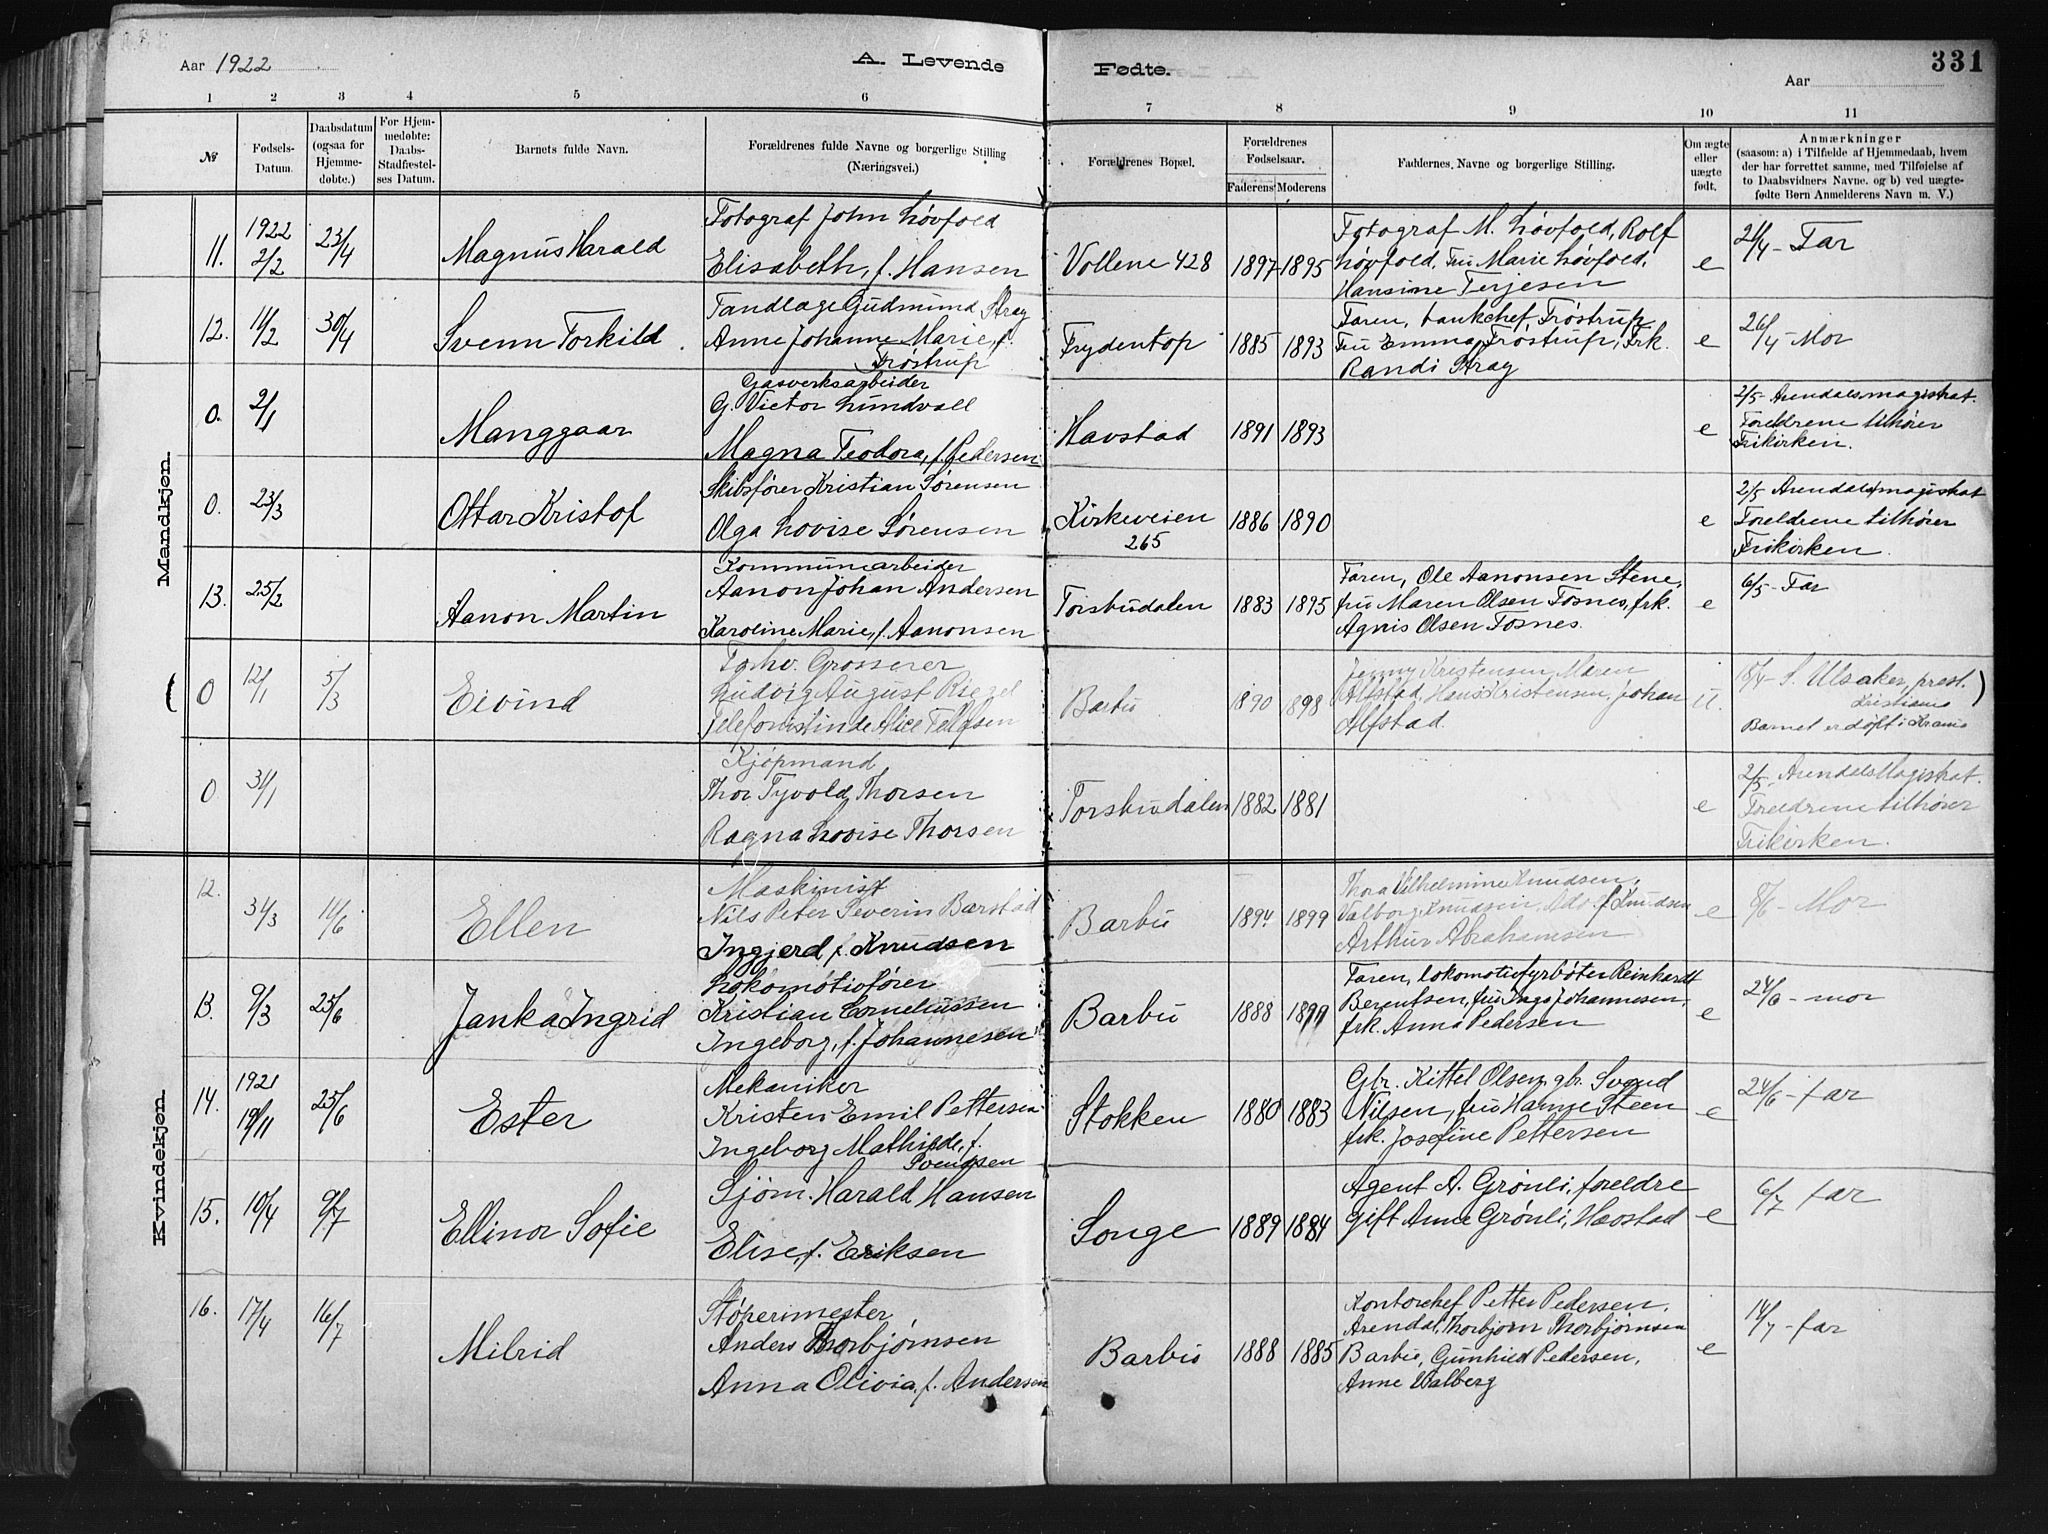 Aar 1922
A. Levende
Fødte.
Aar
331
1 2 3 4 5 6 7 8 9 10 11
№
Fødsels-Datum.
Daabsdatum (ogsaa for Hjemmedøbte.)
For Hjemmedøbte: Daabs-Stadfæstelses Datum.
Barnets fulde Navn.
Forældrenes fulde Navne og borgerlige Stilling (Næringsvei.)
Forældrenes Bopæl.
Forældrenes Fødselsaar.
Faderens Moderens
Faddernes Navne og borgerlige Stilling.
Om ægte eller uægte født.
Anmærkninger
(saasom: a) i Tilfælde af Hjemmedaab, hvem
der har forrettet samme, med Tilføielse af
to Daabsvidners Navne, og b) ved uægte-
fødte Børn Anmelderens Navn m. V.)
Mandkjøn.
11. 1922 2/2 23/4 Magnus Harald
Fotograf John Løvfold
Elisabeth, f. Hansen
Vollene 428 1897 1895
Fotograf M. Løvfold, Rolf
Løvfold, Fru Marie Løvfold,
Hansine Terjesen
e 21/4 - Far
12. 11/2 30/4 Svenn Torkild
Tandlæge Gudmund Stray
Anne Johanne Marie, f.
Trøstrup
Frydentop 1885 1893
Faren, bankchef Trøstrup
Fru Emma Trøstrup, Frk.
Randi Stray
e 26/4 - Mor
0. 2/1 Manggaar
Gasverksarbeider
G. Victor Lundvall
Magna Teodora, f. Pedersen
Havstad 1891 1893
e 2/5 - Arendals magistrat.
Foreldrene tilhører
Frikirken.
0. 23/3 Ottar Kristof
Skibsfører Kristian Sørensen
Olga Lovise Sørensen
Kirkeveien 1886 1890
265
e 2/5 Arendals magistrat
Foreldrene tilhører
Frikirken.
13. 25/2 Aanon Martin
Kommunearbeider
Aanon Johan Andersen
Karoline Marie, f. Aanonsen
Torsbudalen 1883 1895
Faren, Ole Aanonsen Stene,
fru Maren Olsen Fosnes, frk.
Agnis Olsen Fosnes.
e 6/5 - Far
( 0 12/1 5/3 Eivind
Grosserer
Ludvig August Riegel
Telefonistinde Alice Tellefsen
Barbu 1890 1898
Jenny Kristensen, Maren
Alfstad, Hans Kristensen, Johan
Alfstad
u. 18/4 - S. Ulsaker, prest. )
Kristiania
Barnet er døpt i Krania
0 31/1
Kjøpmand
Thor Tyvold Thorsen
Ragna Lovise Thorsen
Torsbudalen 1882 1881
e 2/5 - Arendals Magistrat.
Foreldrene tilhører
Frikirken.
Kvindekjøn.
12. 31/3 11/6 Ellen
Maskinist
Nils Peter Severin Barstad
Ingjerd f. Knudsen
Barbu 1894 1899
Thora Vilhelmine Knudsen,
Valborg Knudsen, Adolf Knudsen
Arthur Abrahamsen
e 8/6 - Mor
13. 9/3 25/6 Janka Ingrid
Lokomotivfører
Kristian Corneliussen
Ingeborg, f. Johannesen
Barbu 1888
Faren, lokomotivfyrbøter Reinhardt
Berentsen, fru Inga Johannesen,
frk. Anna Pedersen
e 24/6 - mor
14. 1921 19/11 25/6 Ester
Mekaniker
Kristen Emil Pettersen
Ingeborg Mathilde, f.
Svendsen
Stokken 1880 1883
Gbr. Kittel Olsen, gbr. Svend
Nilsen, fru Hanne Steen
frk. Josefine Pettersen
e 24/6 - far
15. 10/4 9/7 Ellinor Sofie
Sjøm. Harald Hansen
Elise, f. Eriksen
Songe 1889 1884
Agent A. Grønli, foreldre
gift Anne Grønli, Havstad
e 6/7 far
16. 17/4 16/7 Milrid
Støperimester
Anders Thorbjørnsen
Anna Olivia, f. Andersen
Barbu 1888 1885
Kontorchef Petter Pedersen,
Arendal, Thorbjørn Thorbjørnsen
Barbu, Gunhild Pedersen,
Anne Walberg
e 14/7 - far